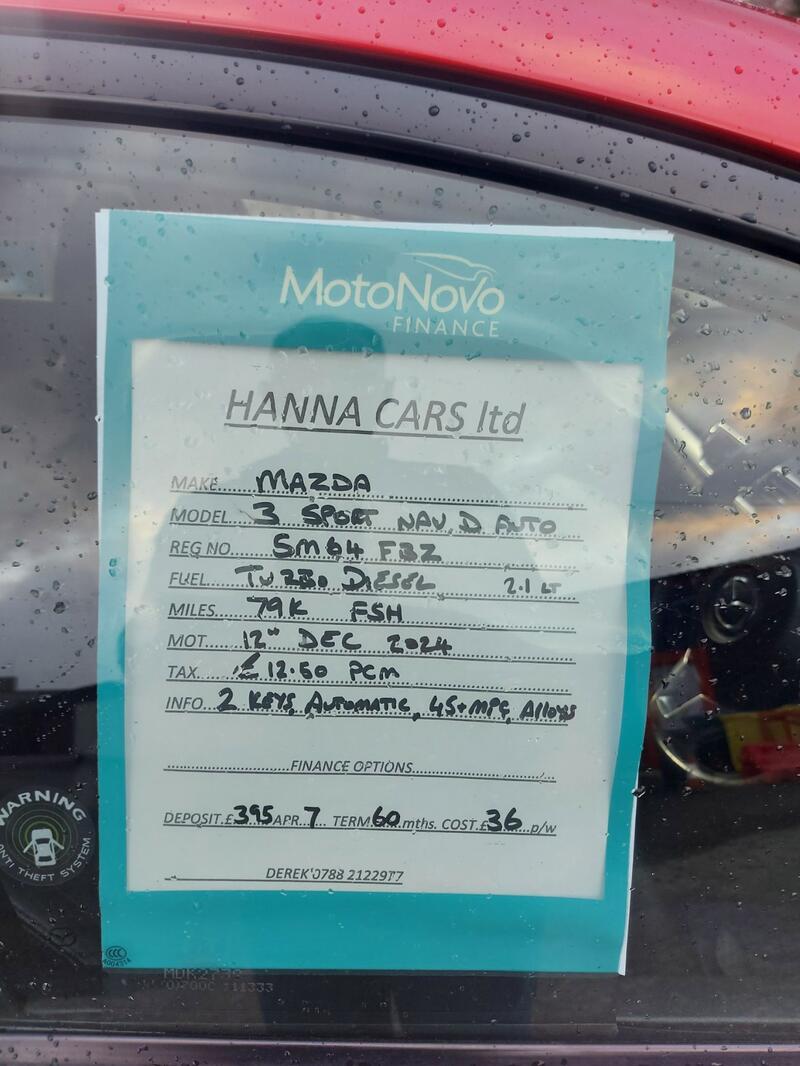 MotoNovo
FINANCE
HANNA CARS ltd
MAKE..... MAZDA
MODEL.. 3 SPORT NAV D AUTO
REG NO.... SM64 FBZ
FUEL.... TURBO DIESEL 2.1 LT
MILES.... 79K FSH
MOT..... 12" DEC 2024
TAX..... £12.50 PCM
INFO... 2 KEYS, AUTOMATIC, 45+MPG, Alloys
FINANCE OPTIONS
DEPOSIT.£395 APR.7.. TERM 60 mths. COST.£36 p/w
DEREK 0788 2122977
WARNING
ANTI THEFT SYSTEM
CCC
A004314